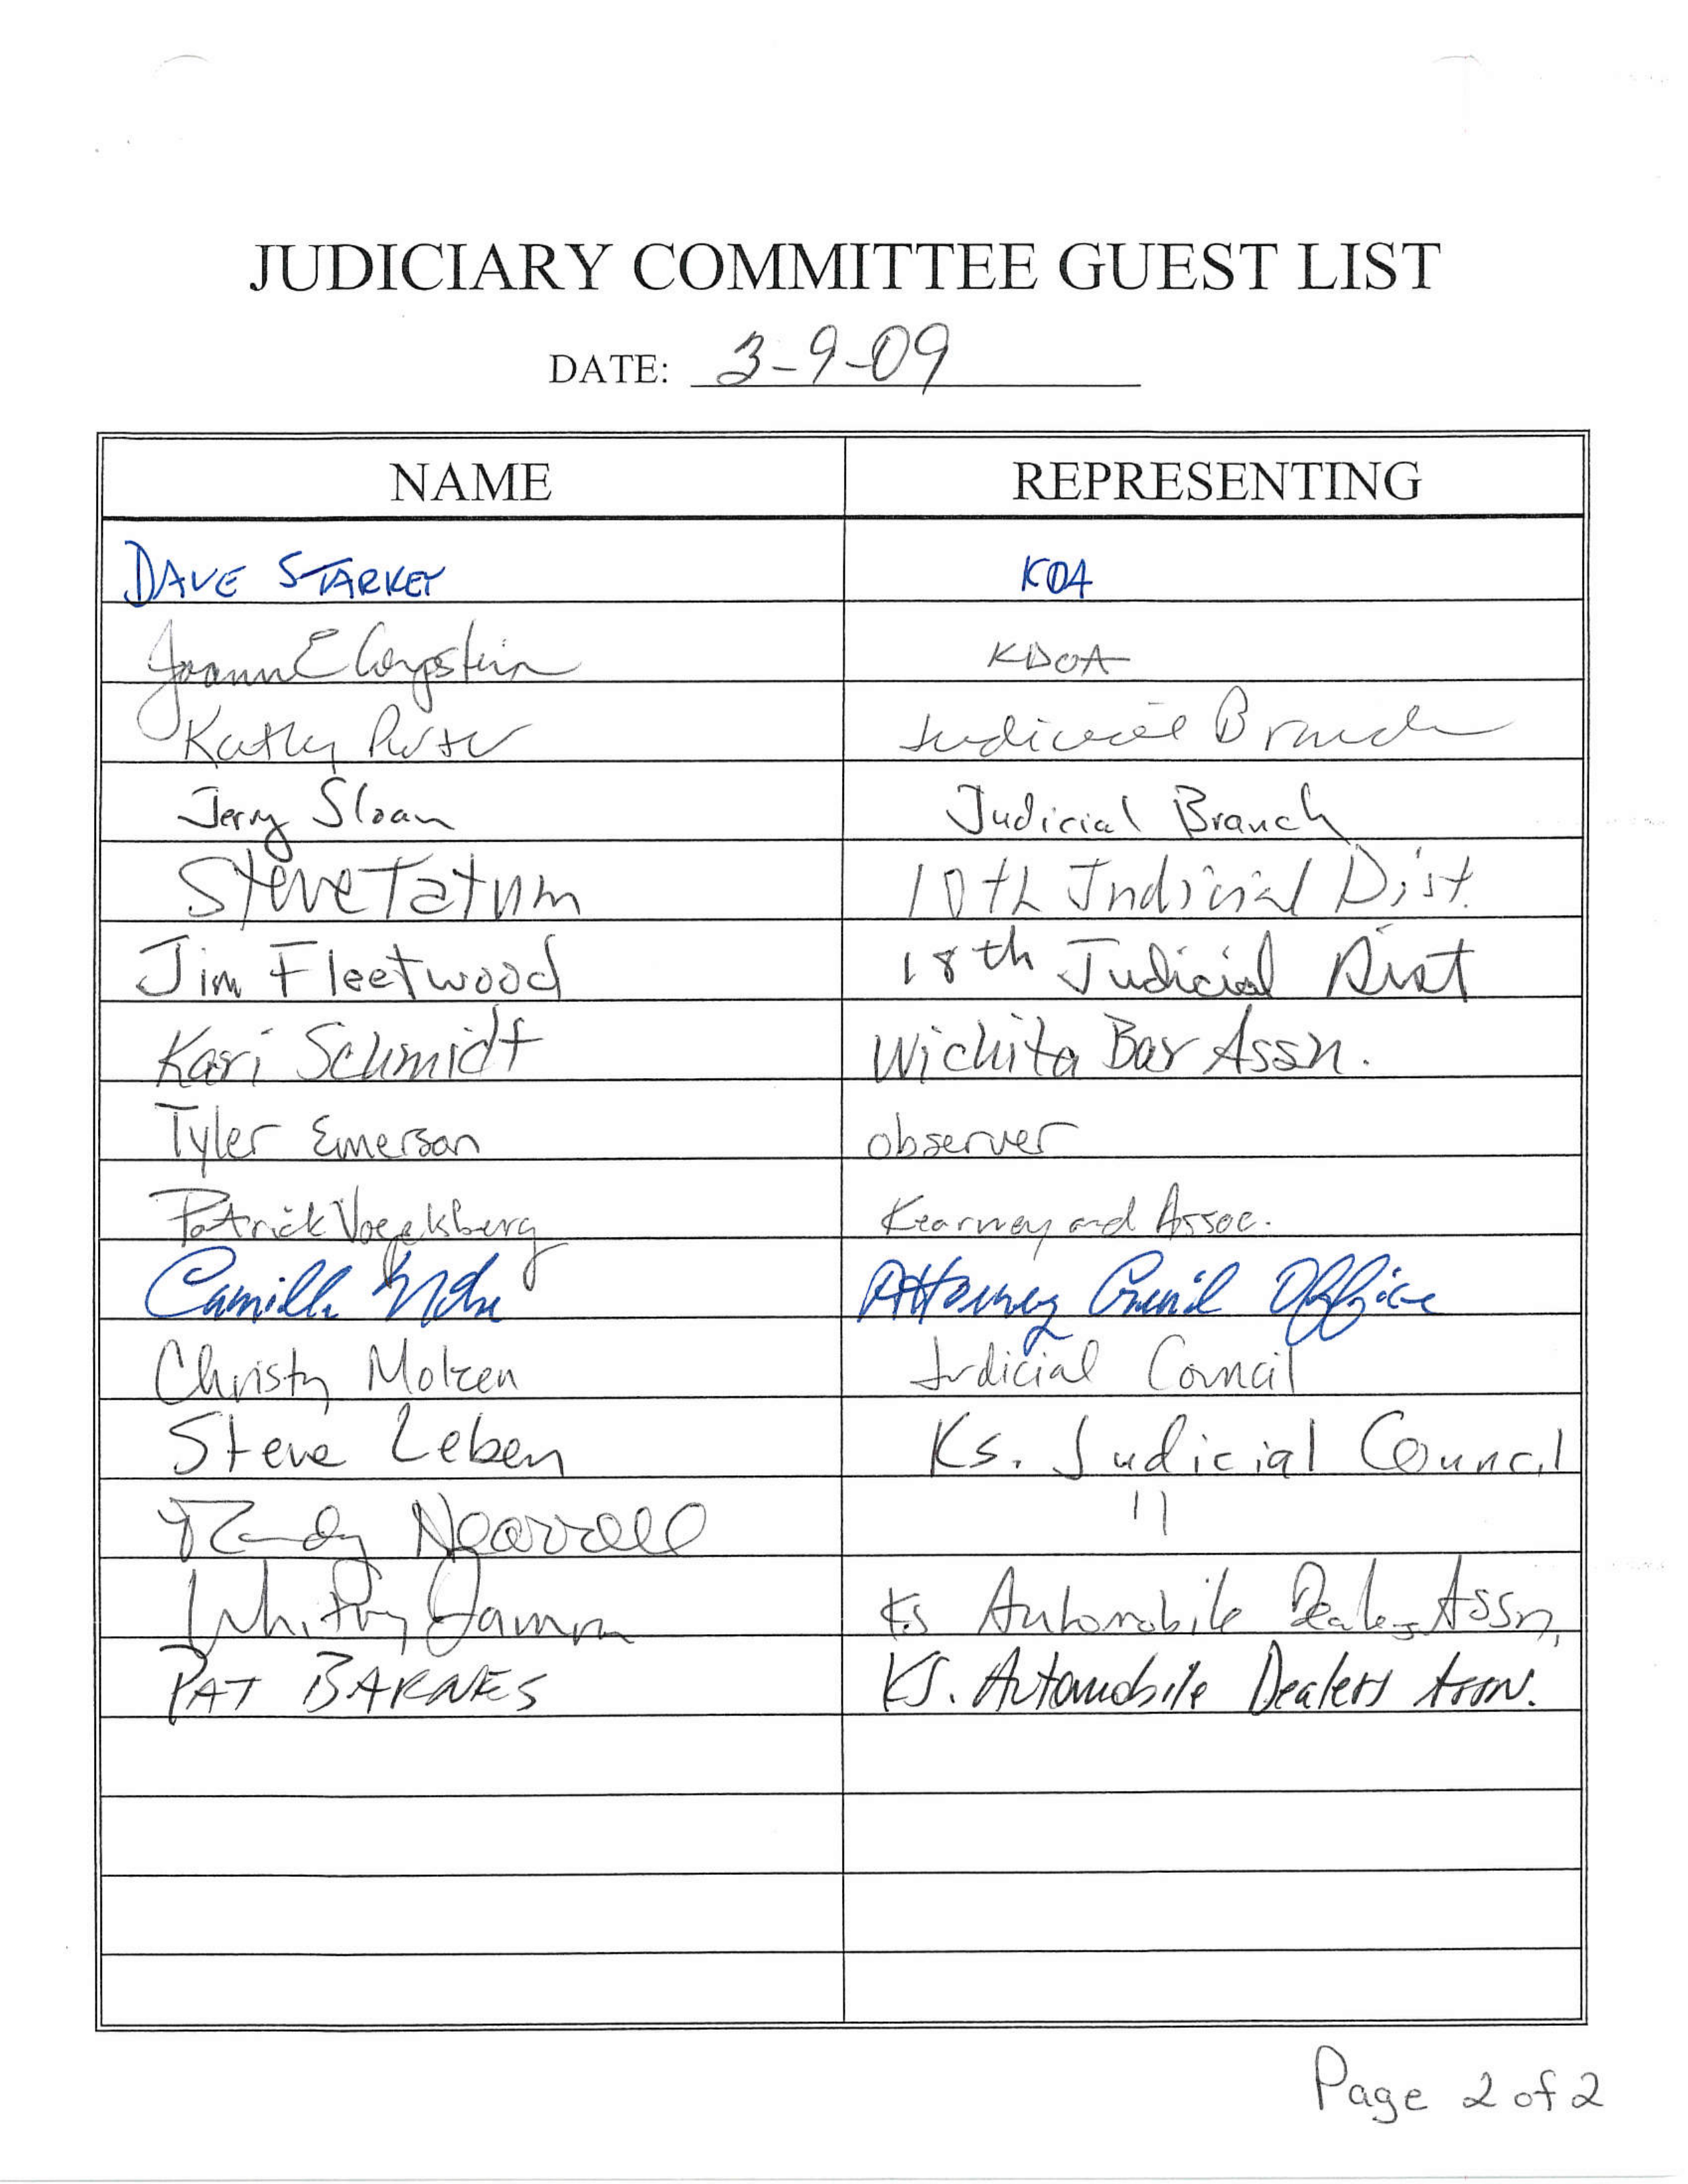 JUDICIARY COMMITTEE GUEST LIST
DATE: 3-9-09
NAME REPRESENTING
DAVE STARKEY KDA
Joann E KDOA
Kathy Porter Judicial Branch
Jerry Sloan Judicial Branch
Steve Tatum 10th Judicial Dist.
Jim Fleetwood 18th Judicial Dist
Kari Schmidt Wichita Bar Assn.
Tyler Emerson observer
Patrick Vogelsberg Kearney and Assoc.
Camille Attorney Office
Christy Molzen Judicial Council
Steve Leben Ks. Judicial Council
Randy Hearrell "
Whitney Damron Ks Automobile Dealers Assn,
PAT BARNES KS. Automobile Dealers Assn.
Page 2 of 2